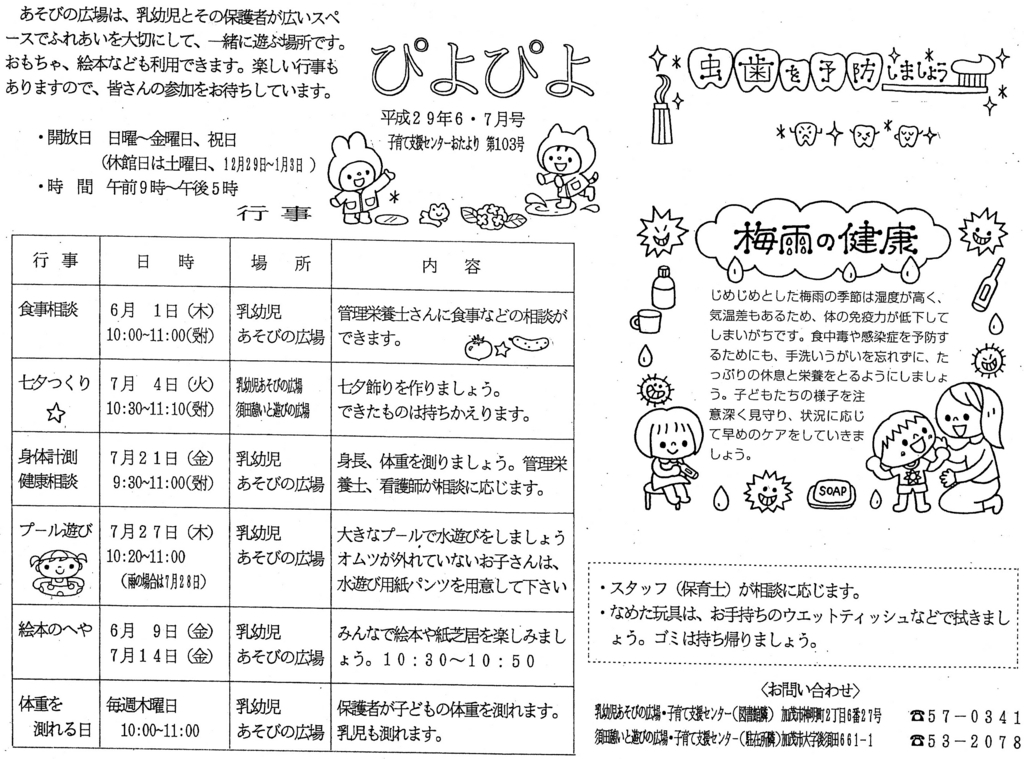 あそびの広場は、乳幼児とその保護者が広いスペ
ースでふれあいを大切にして、一緒に遊ぶ場所です。
おもちゃ、絵本なども利用できます。楽しい行事も
ありますので、皆さんの参加をお待ちしています。
・開放日　日曜～金曜日、祝日
（休館日は土曜日、12月29日～1月3日）
・時　間　午前9時～午後5時
ぴよぴよ
平成29年6・7月号
子育て支援センターおたより 第103号
行　事
行　事　日　時　場　所　内　容
食事相談
6月　1日（木）
10:00~11:00(受付)
乳幼児
あそびの広場
管理栄養士さんに食事などの相談が
できます。
七夕つくり
7月　4日（火）
10:30~11:10(受付)
乳幼児あそびの広場
須田憩いと遊びの広場
七夕飾りを作りましょう。
できたものは持ちかえります。
身体計測
健康相談
7月21日（金）
9:30~11:00(受付)
乳幼児
あそびの広場
身長、体重を測りましょう。管理栄
養士、看護師が相談に応じます。
プール遊び
7月27日（木）
10:20~11:00
（雨の場合は7月28日）
乳幼児
あそびの広場
大きなプールで水遊びをしましょう
オムツが外れていないお子さんは、
水遊び用紙パンツを用意して下さい
絵本のへや
6月　9日（金）
7月14日（金）
乳幼児
あそびの広場
みんなで絵本や紙芝居を楽しみまし
ょう。10:30～10:50
体重を
測れる日
毎週木曜日
10:00~11:00
乳幼児
あそびの広場
保護者が子どもの体重を測れます。
乳児も測れます。
虫歯を予防しましょう
梅雨の健康
じめじめとした梅雨の季節は湿度が高く、
気温差もあるため、体の免疫力が低下して
しまいがちです。食中毒や感染症を予防す
るためにも、手洗いうがいを忘れずに、た
っぷりの休息と栄養をとるようにしましょ
う。子どもたちの様子を注
意深く見守り、状況に応じ
て早めのケアをしていきま
しょう。
SOAP
・スタッフ（保育士）が相談に応じます。
・なめた玩具は、お手持ちのウエットティッシュなどで拭きまし
ょう。ゴミは持ち帰りましょう。
〈お問い合わせ〉
乳幼児あそびの広場・子育て支援センター（図書館隣）加茂市神明町2丁目6番27号　☎57－0341
須田憩いと遊びの広場・子育て支援センター（駐在所隣）加茂市大字後須田661－1　☎53－2078